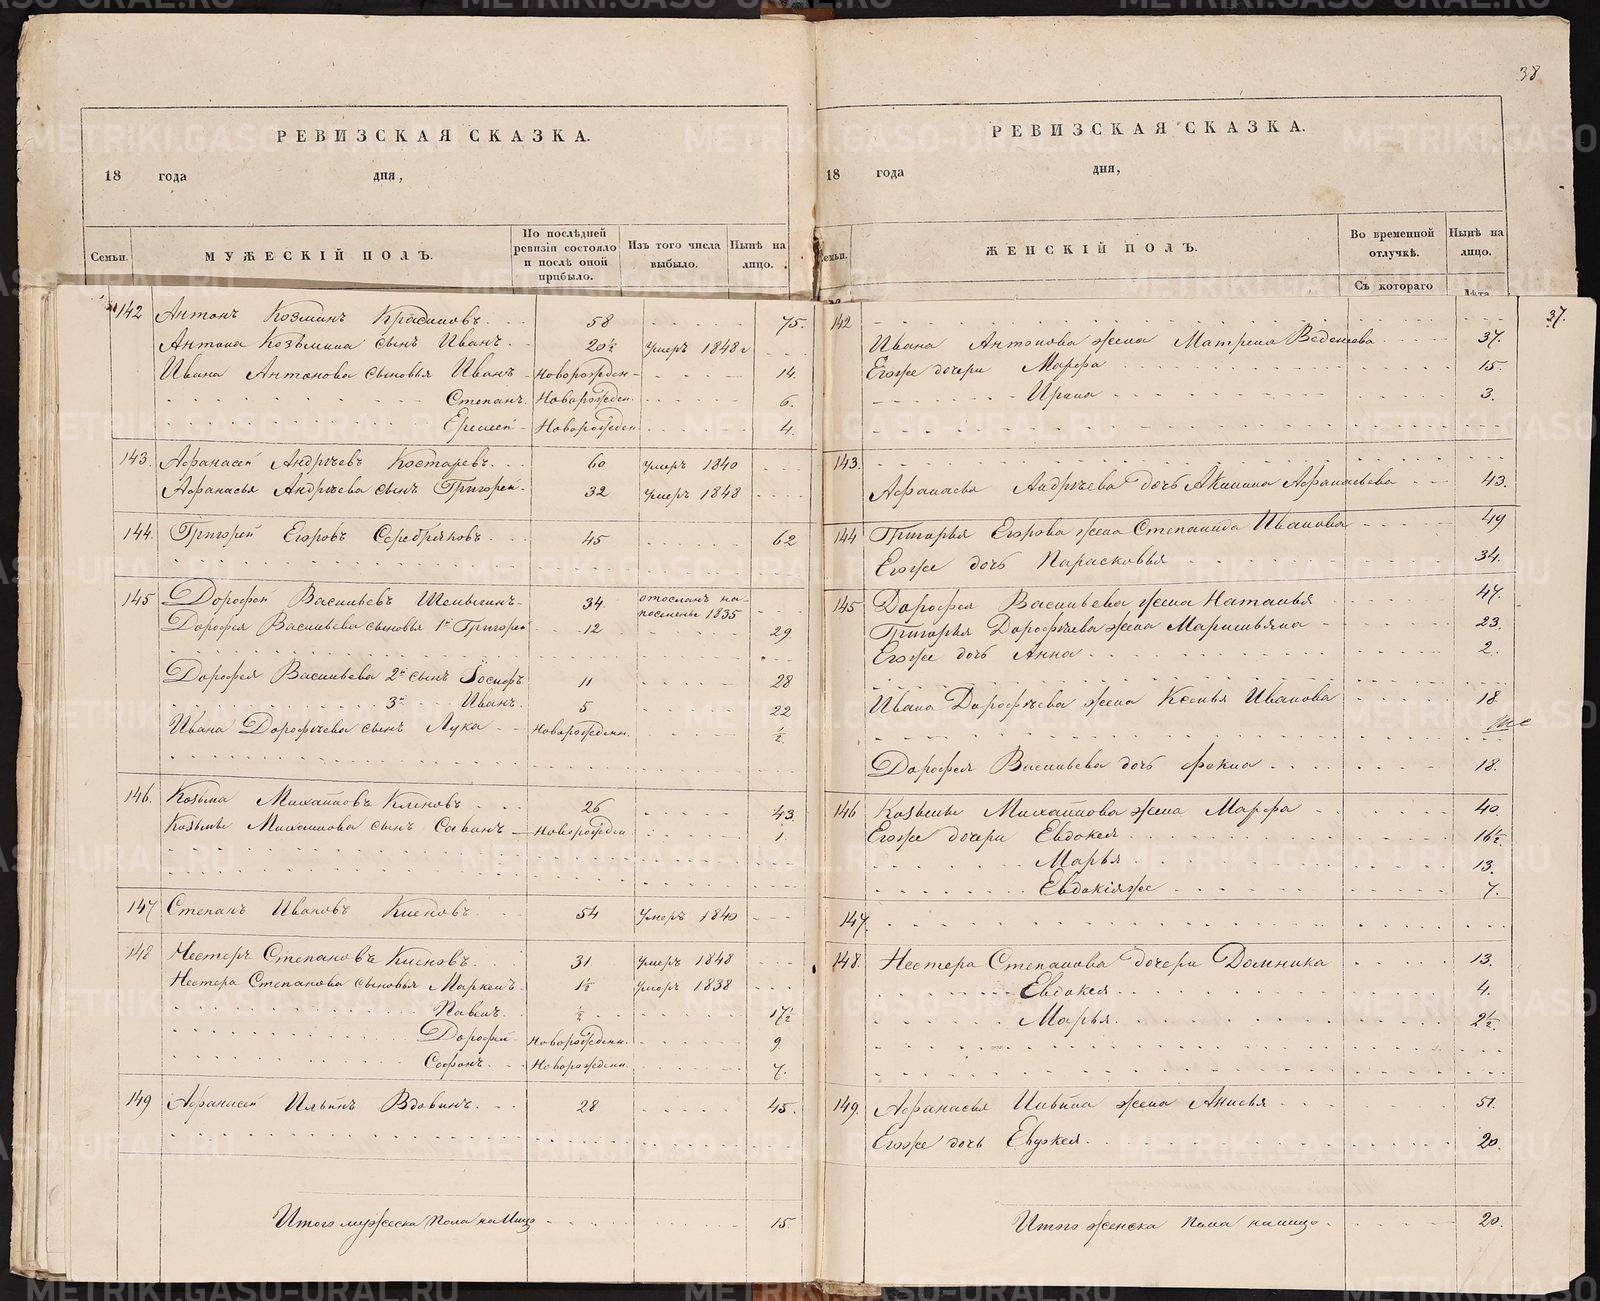 38
РЕВИЗСКАЯ СКАЗКА.
18 года дня,
Семьи.
МУЖЕСКІЙ ПОЛЪ.
По послѣдней ревизіи состояло и послѣ оной прибыло.
Изъ того числа выбыло.
Нынѣ на лицо.
142 Антонъ Козминъ 58 75.
Антона Козьмина сынъ Иванъ. 20½ умеръ 1848 г
Ивана Антонова сыновья Иванъ Новорожден 14.
Степанъ. Новорожден. 6.
Ермей Новорожден 4.
143. Афанасей Андрѣевъ Костаревъ. 60 умеръ 1840
Афанасья Андрѣева сынъ Григорей 32 умеръ 1848
144. Григорей Егоровъ Серебряковъ. 45 62
145 Дорофей Васильевъ 34. отосланъ на поселенье 1835
Дорофея Васильева сыновья 1й Григорей 12 29
Дорофея Васильева 2й сынъ Іосифъ 11 28
3й Иванъ. 5 22
Ивана Дорофѣева сынъ Лука Новорожденн. ½
146. Козьма Михайловъ 26 43.
Козьмы Михайлова сынъ Савинъ Новорожден 1.
147 Степанъ Ивановъ 54 умеръ 1840
148 Нестеръ Степановъ 31 умеръ 1848
Нестера Степанова сыновья Маркелъ. 1½ умеръ 1838
Павелъ. ½ 17½
Дорофей Новорожденн. 9
Софонъ. Новорожденн. 7.
149 Афанасей Ильинъ Вдовинъ. 28 45.
Итого мужеска пола на лицо 15
РЕВИЗСКАЯ СКАЗКА.
18 года дня,
Семьи.
ЖЕНСКІЙ ПОЛЪ.
Во временной отлучкѣ.
Нынѣ на лицо.
Съ котораго
Лѣта
37.
142
Ивана Антонова жена Матрена 37.
Егоже дочери Марфа 15.
Ирина 3.
143.
Афанасья Андрѣева дочь Акилина Афанасьева 43.
144 Григорья Егорова жена Степанида Иванова 49
Егоже дочь Парасковья 34.
145 Дорофея Васильева жена Наталья 47.
Григорья Дорофѣева жена Маримьяна 23.
Егоже дочь Анна 2.
Ивана Дорофѣева жена Ксенья Иванова 18
Дорофея Васильева дочь Фекла 18.
146 Козьмы Михайлова жена Марфа 40.
Егоже дочери Евдокея 16½.
Марья 13.
Евдокіяже 7.
147.
148. Нестера Степанова дочери Домника 13.
Евдокея 4.
Марья. 2½.
149. Афанасья Ильина жена Анисья 51.
Егоже дочь Евдокея. 20.
Итого женска пола налицо. 20.
METRIKI.GASO-URAL.RU